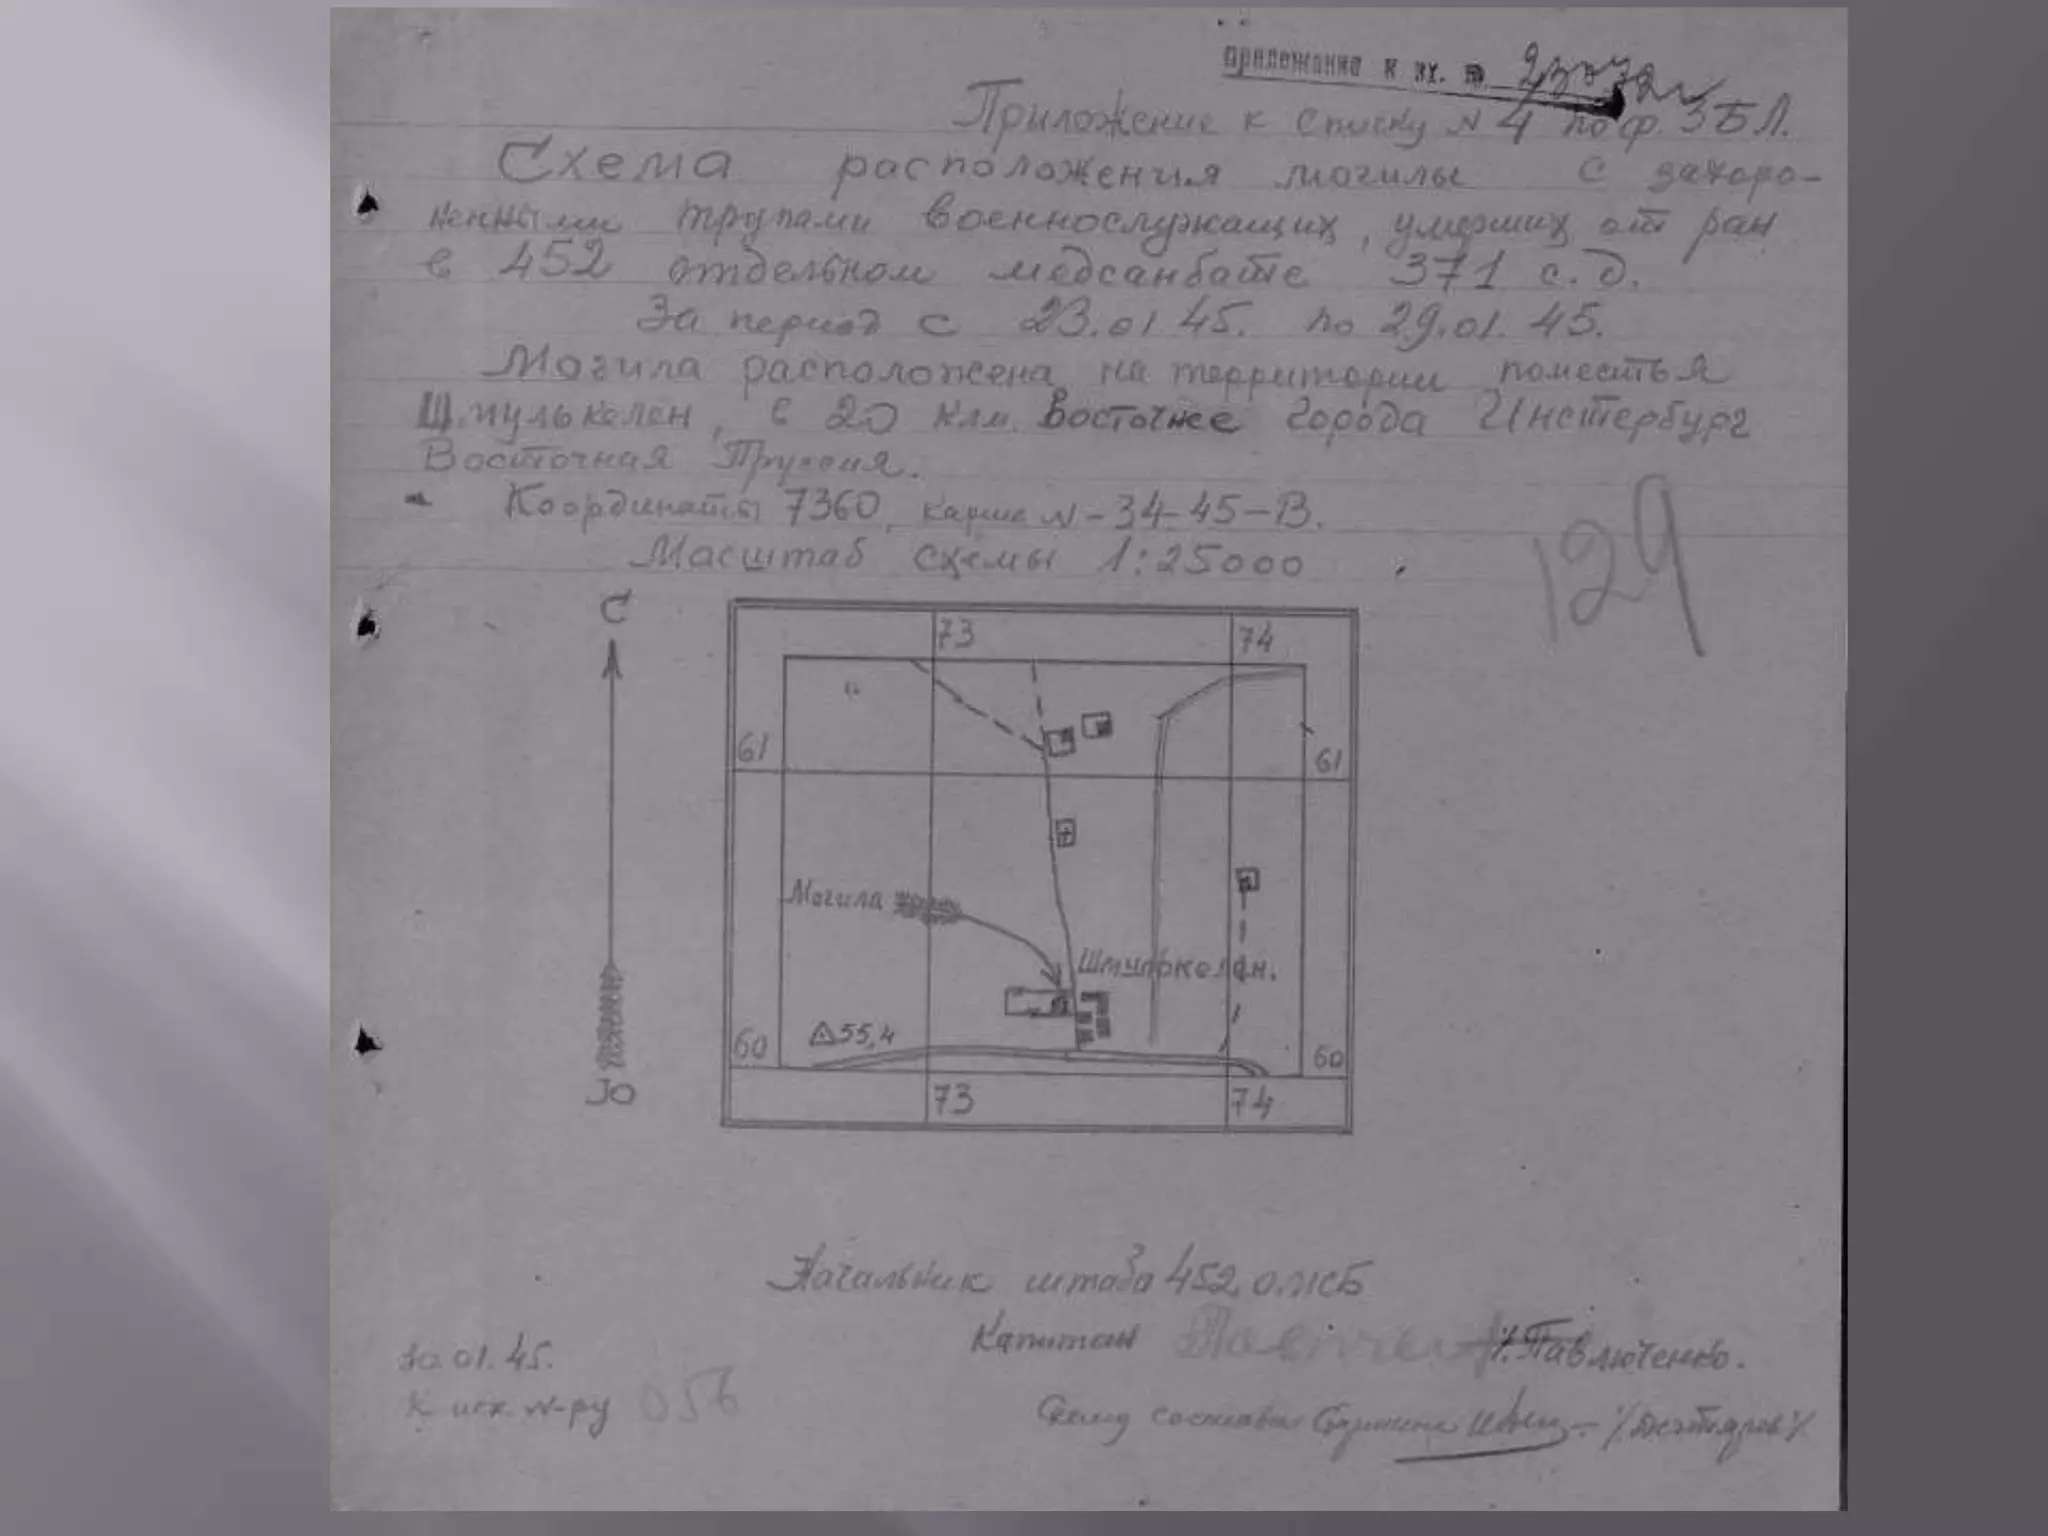 приложение к вх. №
Приложение к списку N 4 по ф. 3 БЛ.
Схема расположения могилы с захоро-
ненными трупами военнослужащих, умерших от ран
в 452 отдельном медсанбате 371 с.д.
За период с 23.01 45. по 29.01. 45.
Могила расположена на территории поместья
Шмулькелен, в 20 клм. Восточнее города Инстербург
Восточная Пруссия.
Координаты 7360, карта N-34-45-В.
Масштаб схемы 1:25000
129
С
73 74
61 61
Могила
Шмулькелен.
55,4
60 60
73 74
Ю
Начальник штаба 452 ОМСБ
Капитан /Павлюченко.
30.01.45.
К исх. N-ру 056
Схему составил /Дехтярев/